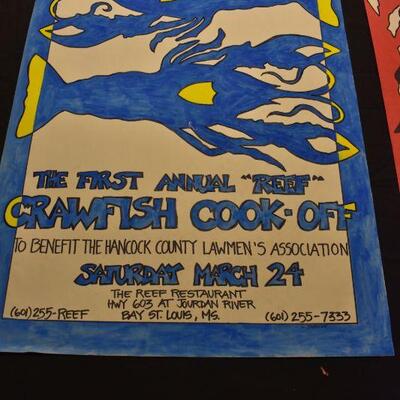 THE FIRST ANNUAL "REEF"
CRAWFISH COOK-OFF
TO BENEFIT THE HANCOCK COUNTY LAWMEN'S ASSOCIATION
SATURDAY MARCH 24
THE REEF RESTAURANT
HWY 603 AT JOURDAN RIVER
(601) 255-REEF BAY ST. LOUIS, MS. (601) 255-7333